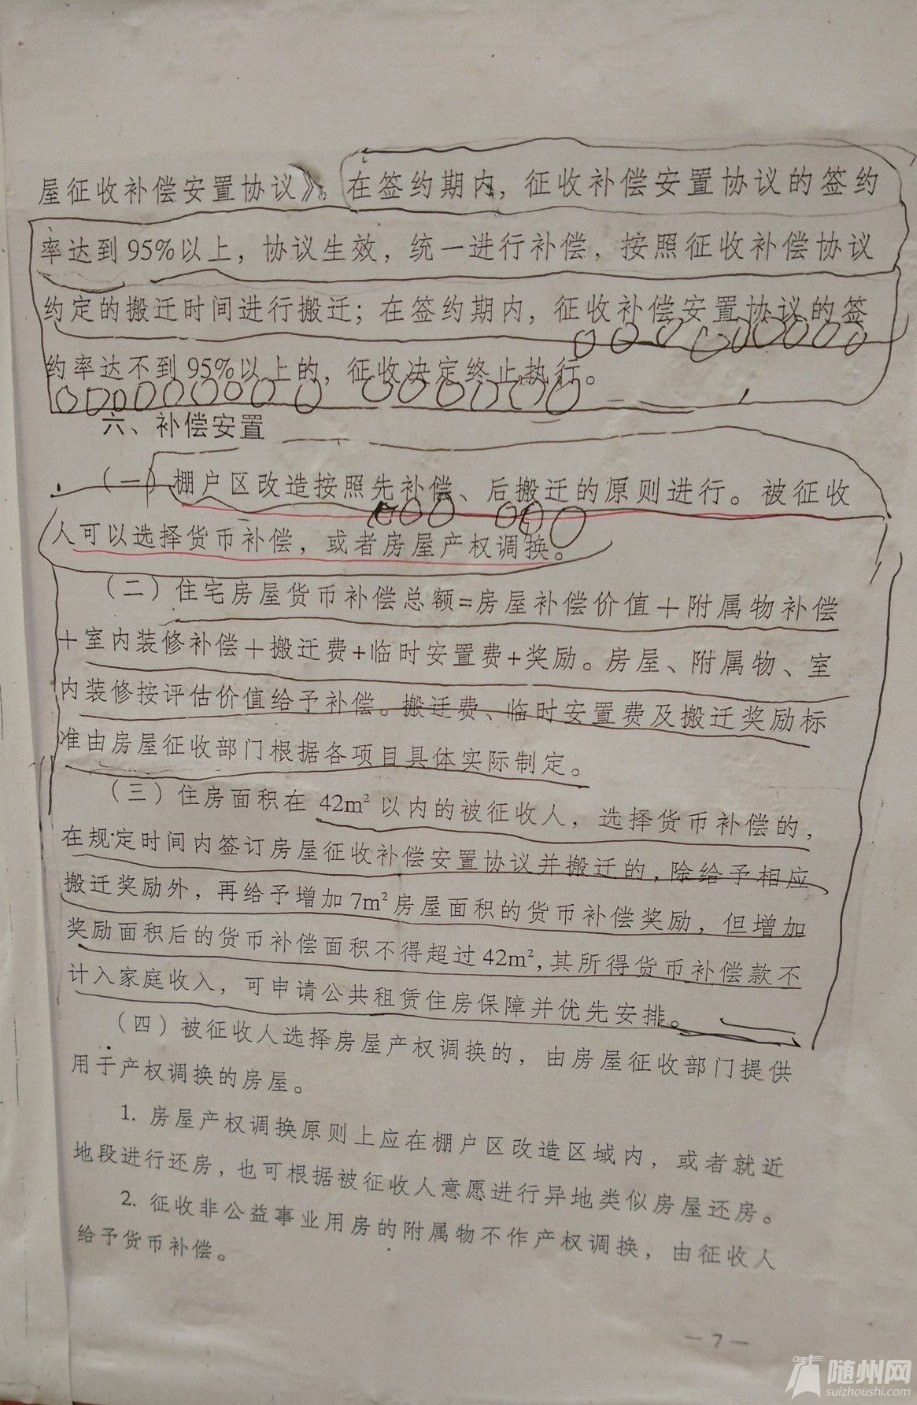 屋征收补偿安置协议》。在签约期内，征收补偿安置协议的签约
率达到95%以上，协议生效，统一进行补偿，按照征收补偿协议
约定的搬迁时间进行搬迁；在签约期内，征收补偿安置协议的签
约率达不到95%以上的，征收决定终止执行。
六、补偿安置
（一）棚户区改造按照先补偿、后搬迁的原则进行。被征收
人可以选择货币补偿，或者房屋产权调换。
（二）住宅房屋货币补偿总额=房屋补偿价值＋附属物补偿
＋室内装修补偿＋搬迁费+临时安置费+奖励。房屋、附属物、室
内装修按评估价值给予补偿。搬迁费、临时安置费及搬迁奖励标
准由房屋征收部门根据各项目具体实际制定。
（三）住房面积在42m²以内的被征收人，选择货币补偿的，
在规定时间内签订房屋征收补偿安置协议并搬迁的，除给予相应
搬迁奖励外，再给予增加7m²房屋面积的货币补偿奖励，但增加
奖励面积后的货币补偿面积不得超过42m²，其所得货币补偿款不
计入家庭收入，可申请公共租赁住房保障并优先安排。
（四）被征收人选择房屋产权调换的，由房屋征收部门提供
用于产权调换的房屋。
1. 房屋产权调换原则上应在棚户区改造区域内，或者就近
地段进行还房，也可根据被征收人意愿进行异地类似房屋还房。
2. 征收非公益事业用房的附属物不作产权调换，由征收人
给予货币补偿。
—7—
随州网
suizhoushi.com